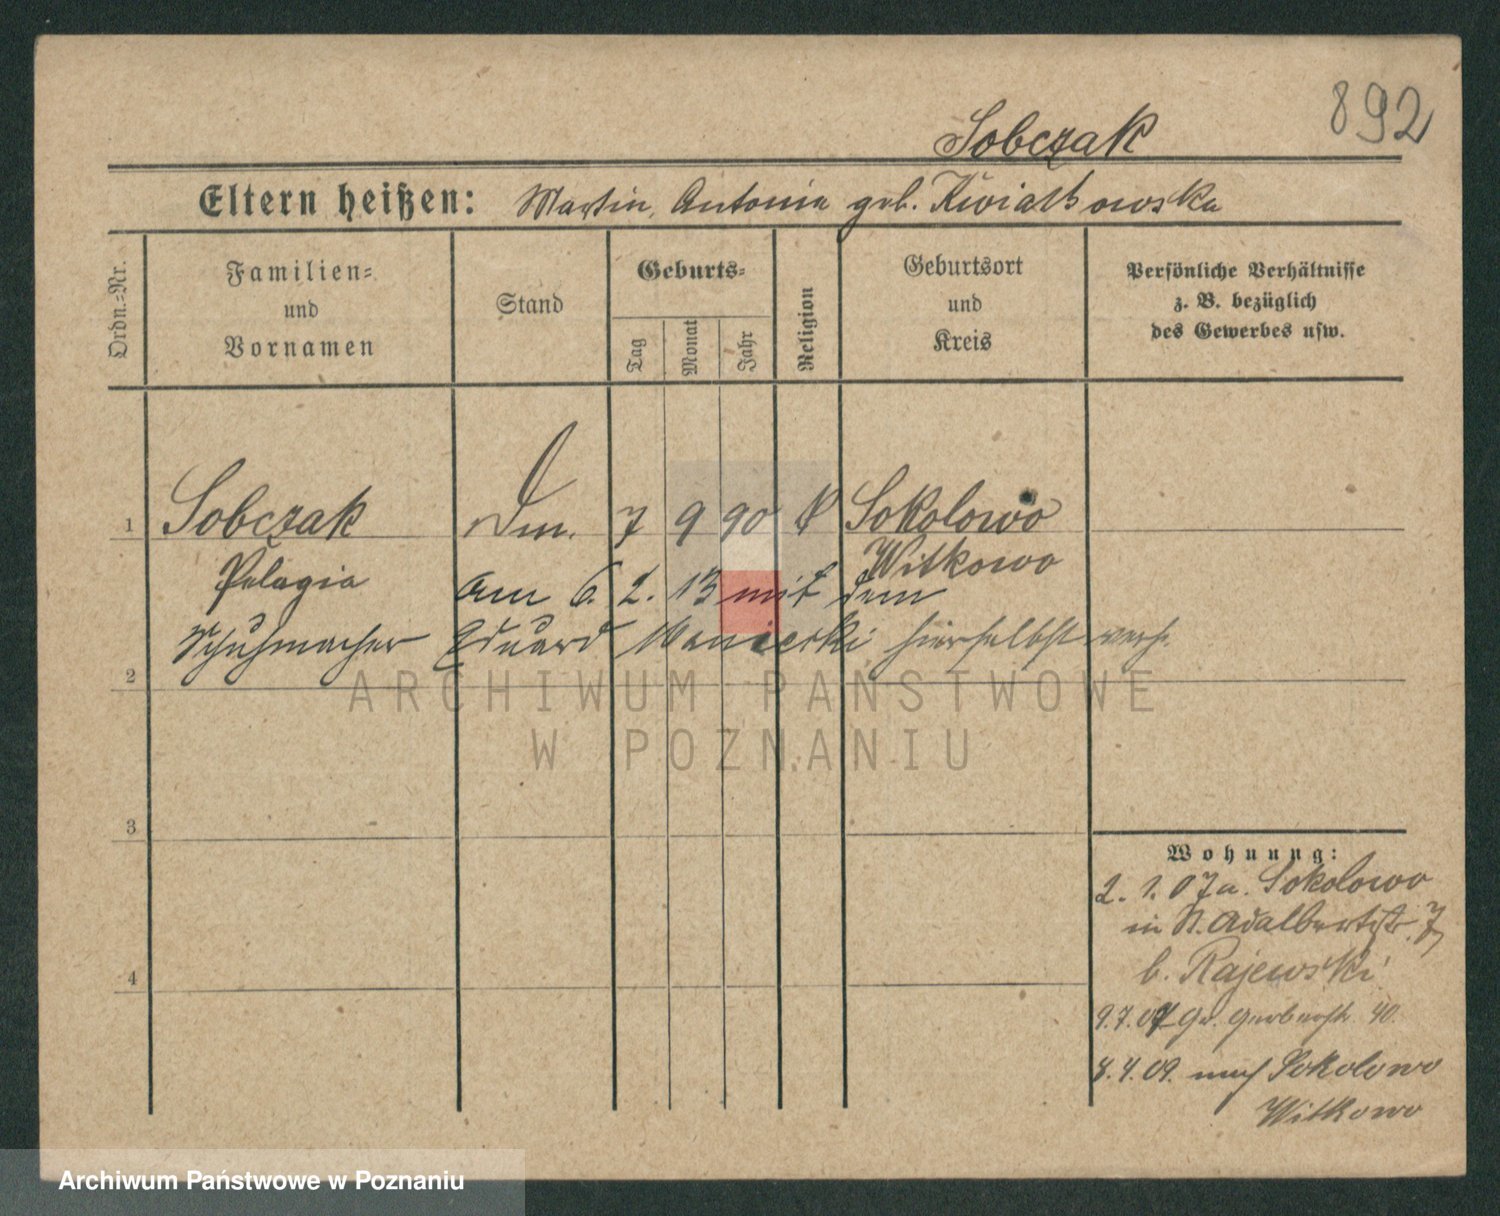 892
Sobczak
Eltern heißen: Martin, Antonia geb. Kwiatkowska
Ordn.-Nr.
Familien-
und
Vornamen
Stand
Geburts-
Tag
Monat
Jahr
Religion
Geburtsort
und
Kreis
Persönliche Verhältnisse
z. B. bezüglich
des Gewerbes usw.
1 Sobczak Dm. 7 9 90 k Sokolowo
Pelagia Witkowo
am 6. 2. 13 mit dem
Schuhmacher Eduard hierselbst verh.
2
3
4
Wohnung:
2. 1. 07 a. Sokolowo
in St. Adalbertstr. 7
b. Rajewski
9.7.07 Gr. Gerberstr. 40.
8.4.09. nach Sokolowo
Witkowo
ARCHIWUM PAŃSTWOWE
W POZNANIU
Archiwum Państwowe w Poznaniu